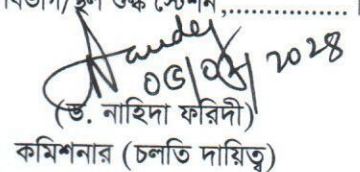 বিভাগ/স্থল শুল্ক স্টেশন,..................
০৫/০৫/২০২৪
(ড. নাহিদা ফরিদী)
কমিশনার (চলতি দায়িত্ব)